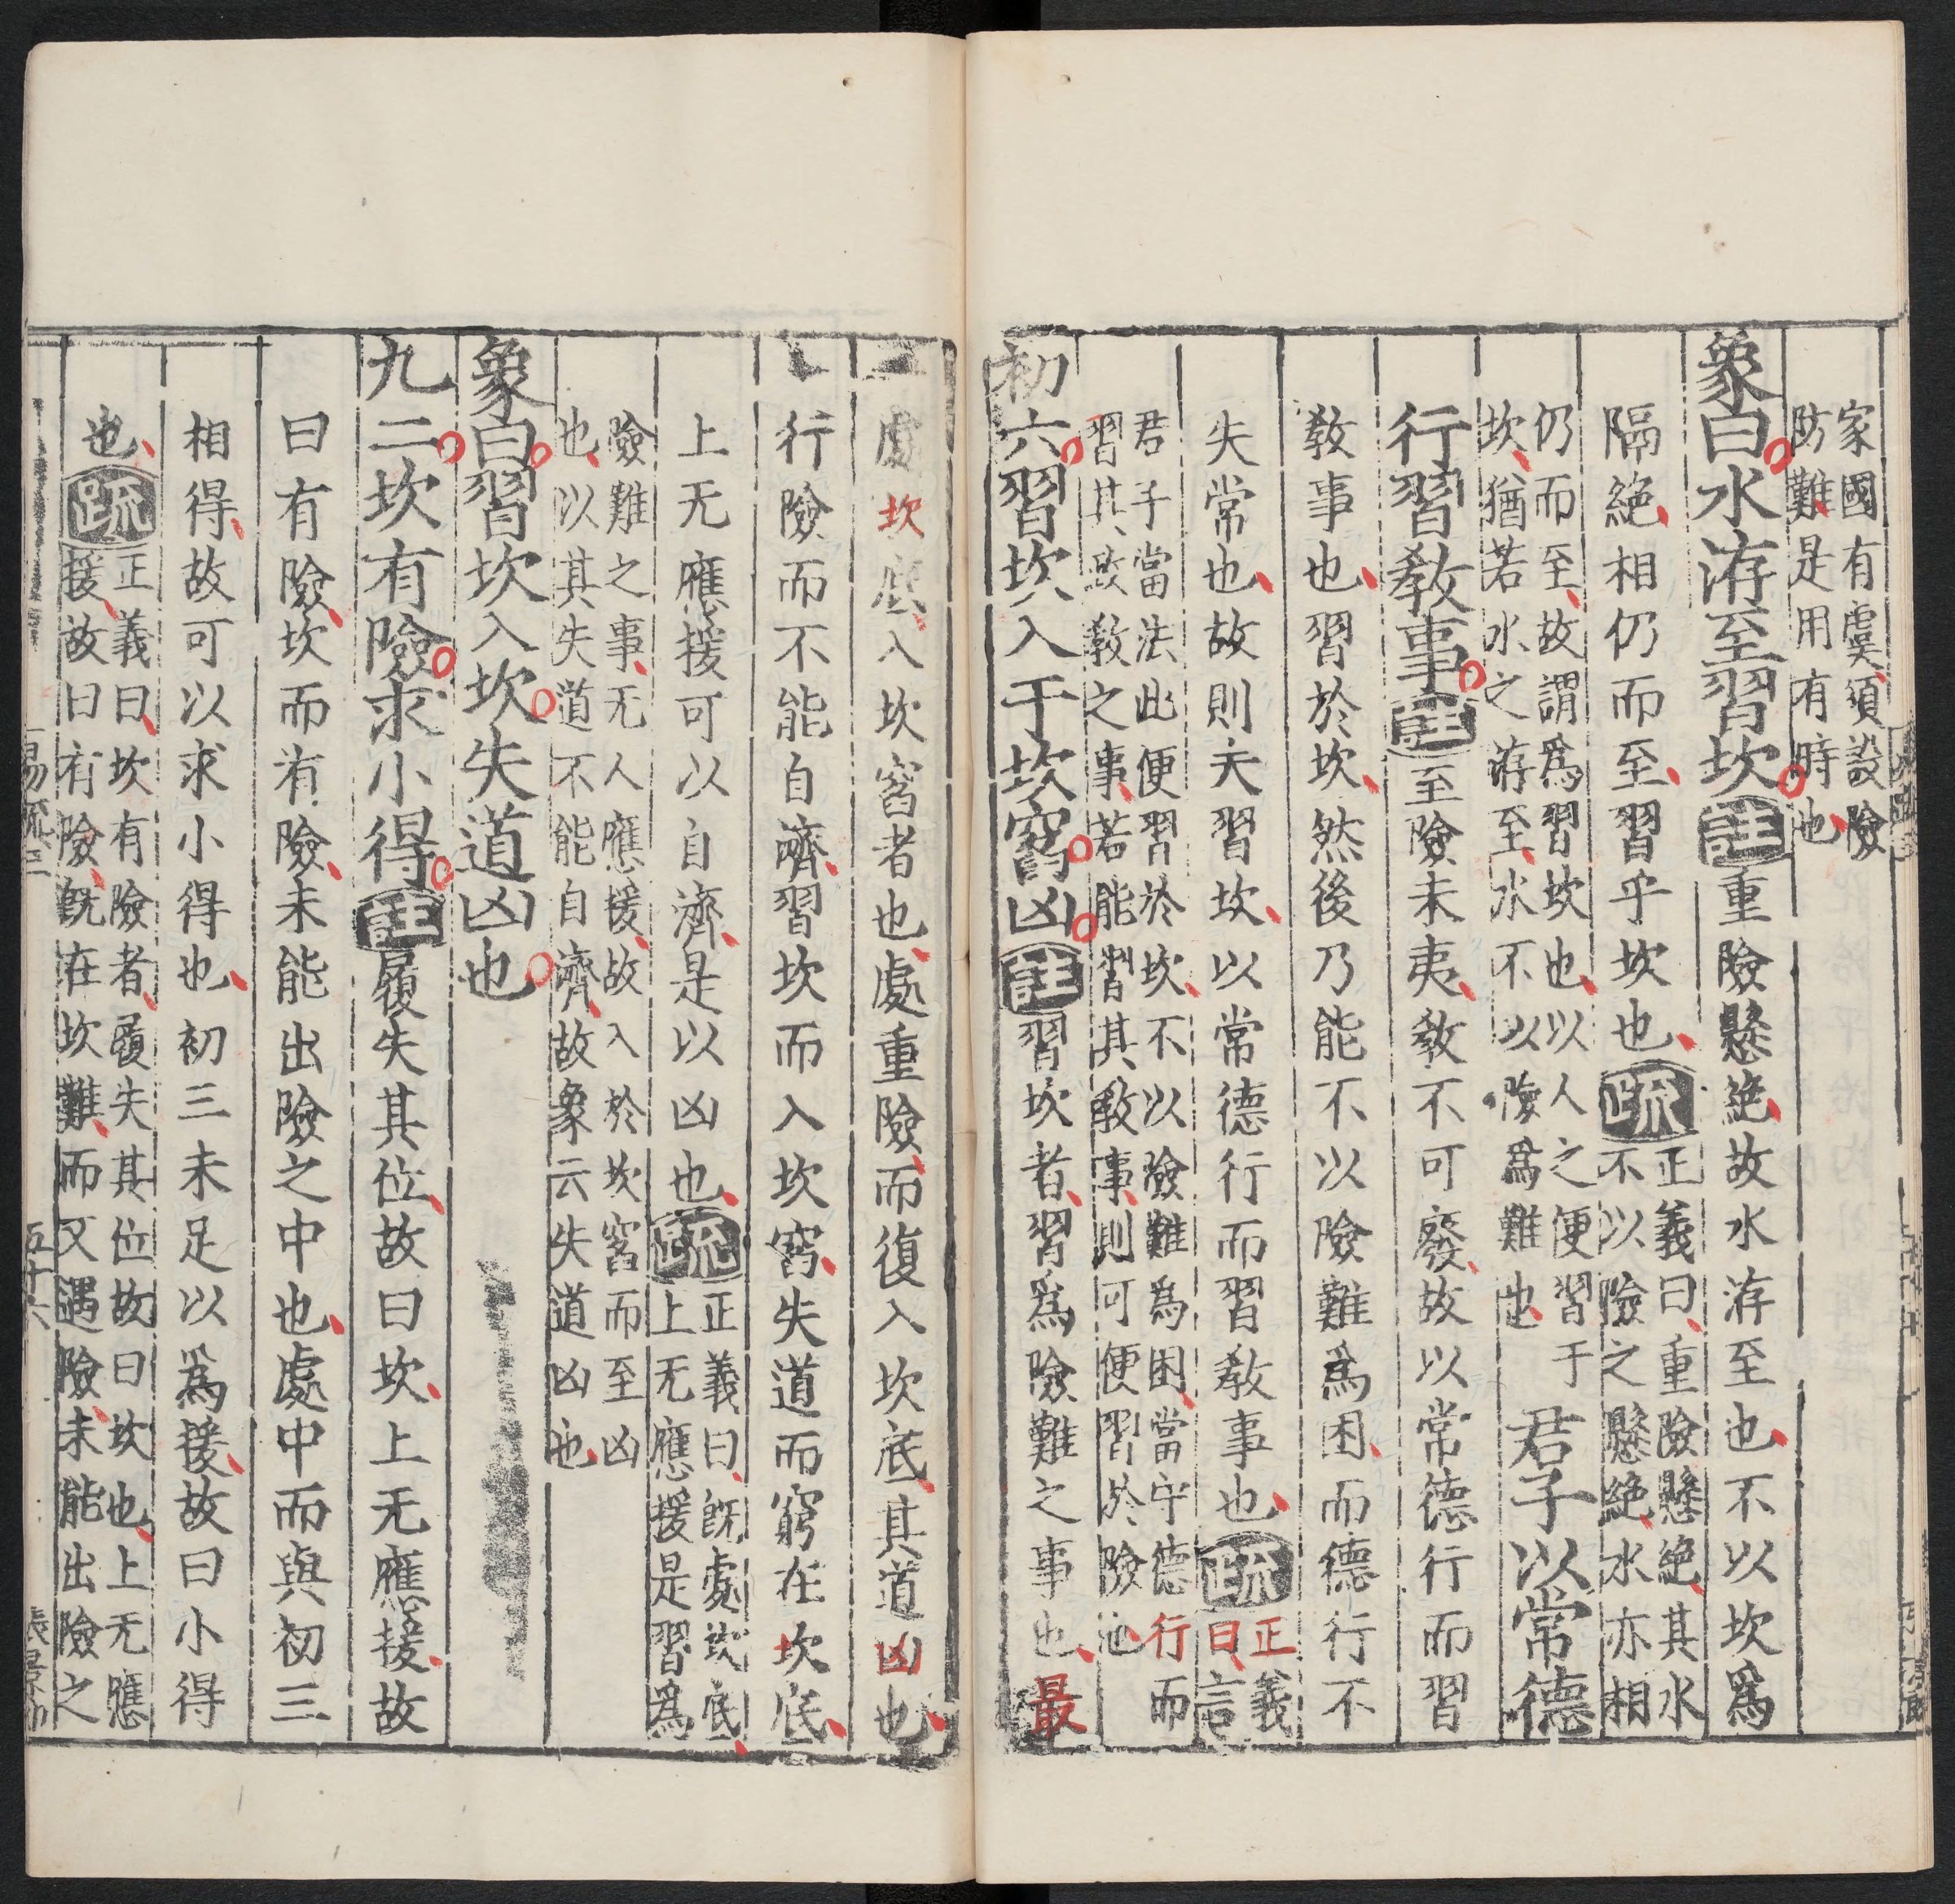 家國有虞須設險
防難是用有時也
象曰水洊至習坎註重險懸絶故水洊至也不以坎爲
隔絶相仍而至習乎坎也疏正義曰重險懸絶其水
不以險之懸絶水亦相
仍而至故謂爲習坎也以人之便習于
坎猶若水之洊至水不以險爲難也君子以常德
行習教事註至險未夷教不可廢故以常德行而習
教事也習於坎然後乃能不以險難爲困而德行不
失常也故則夫習坎以常德行而習教事也疏正義
曰言
君子當法此便習於坎不以險難爲困當守德行而
習其政教之事若能習其教事則可便習於險也
初六習坎入于坎窞凶註習坎者習爲險難之事也最
處坎底入坎窞者也處重險而復入坎底其道凶也
行險而不能自濟習坎而入坎窞失道而窮在坎底
上无應援可以自濟是以凶也疏正義曰旣處坎底
上无應援是習爲
險難之事无人應援故入於坎窞而至凶
也以其失道不能自濟故象云失道凶也
象曰習坎入坎失道凶也
九二坎有險求小得註履失其位故曰坎上无應援故
曰有險坎而有險未能出險之中也處中而與初三
相得故可以求小得也初三未足以爲援故曰小得
也疏正義曰坎有險者履失其位故曰坎也上无應
援故曰有險旣在坎難而又遇險未能出險之
易疏三
五十六